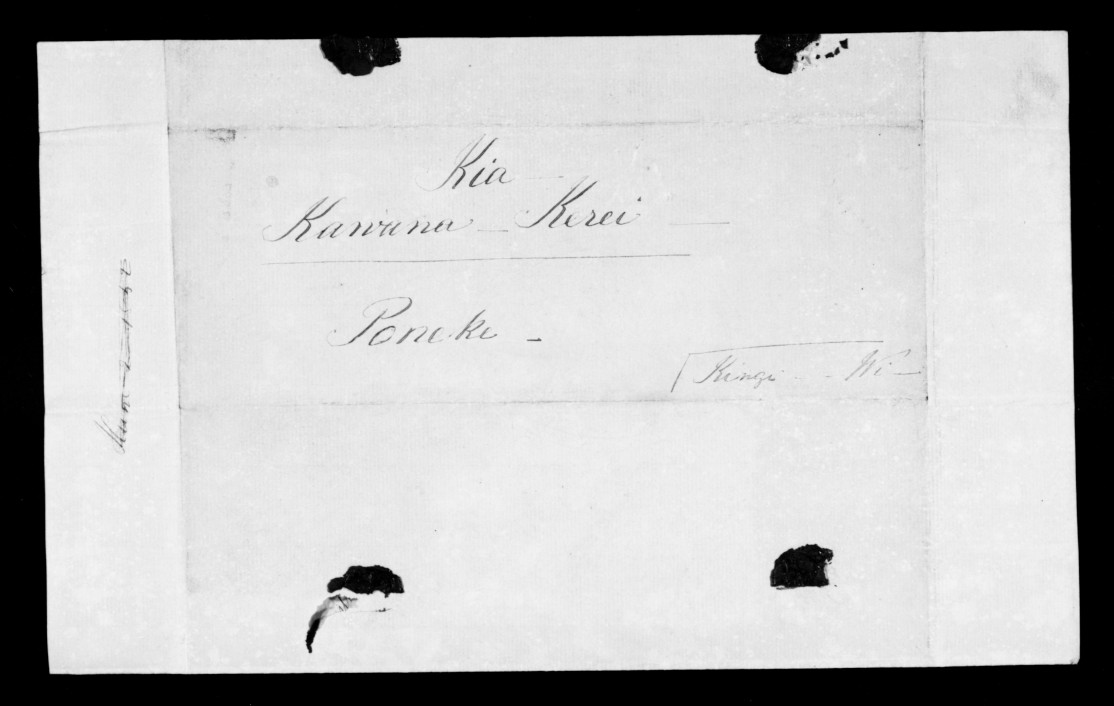 Kia
Kawana - Kerei -
Poneke -
Kingi - - Wi -